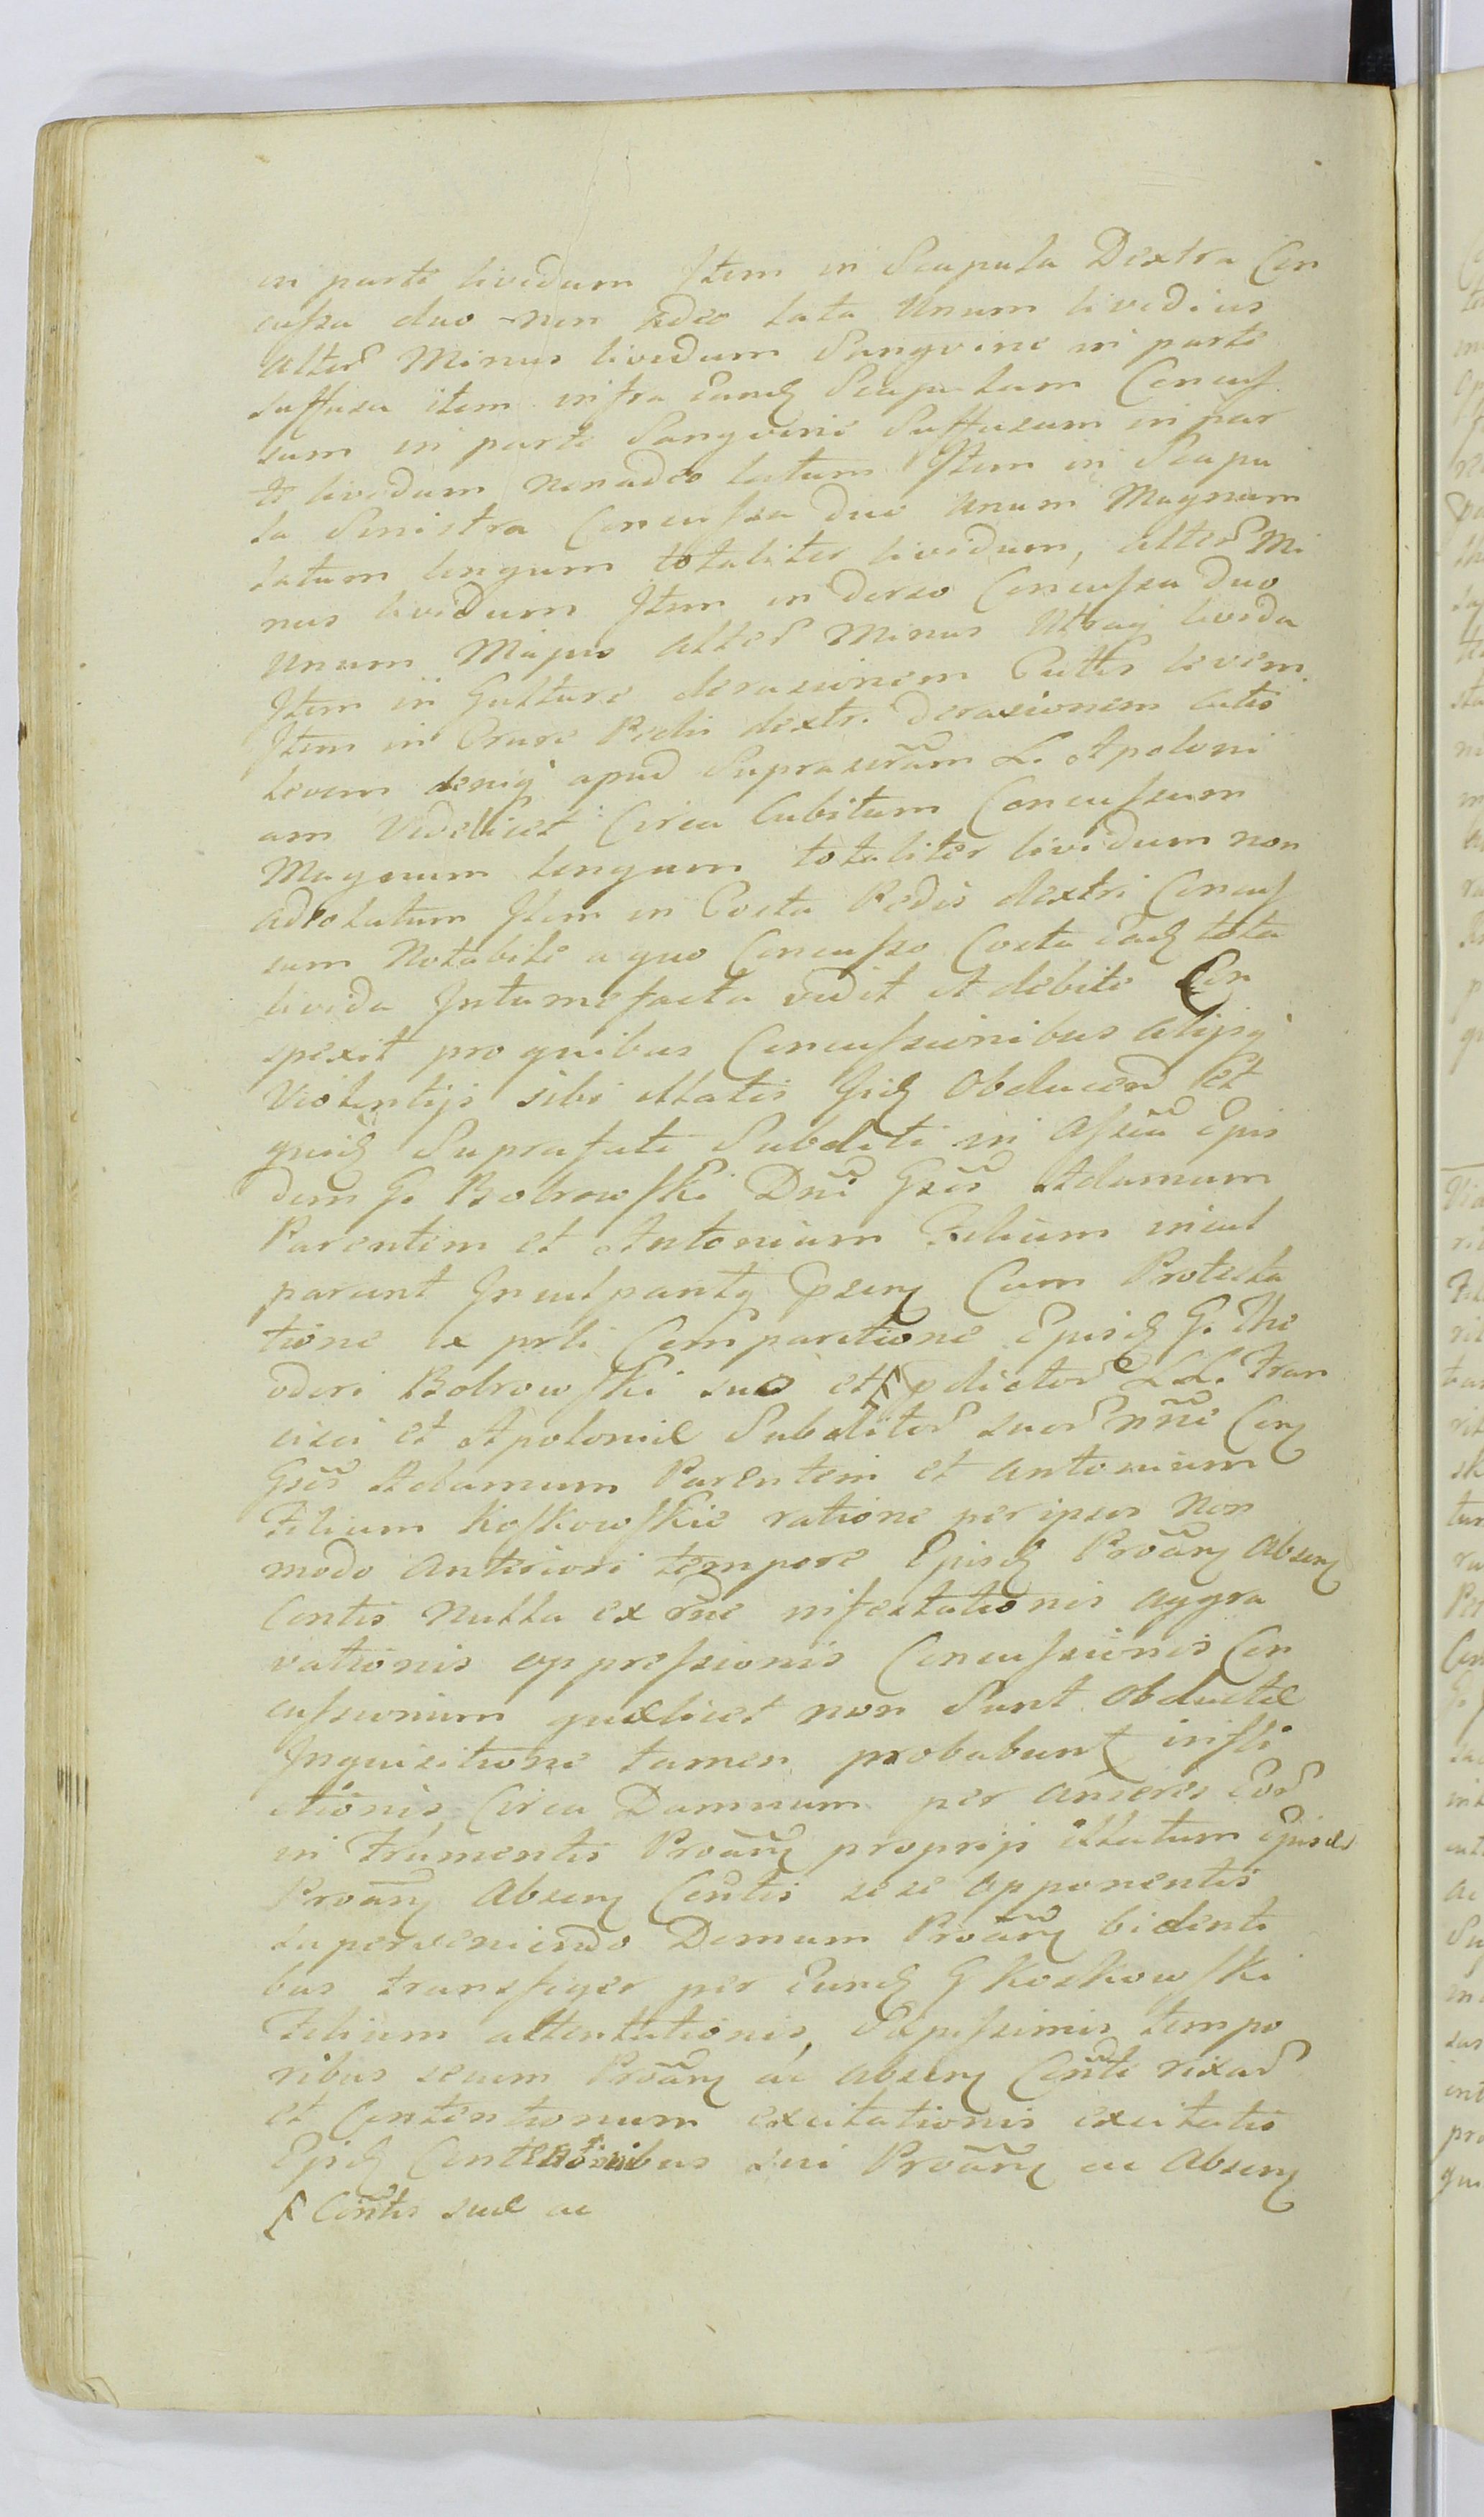 in parte lividum Item in Scapula Dextra Con
cussa duo non adeo lata Unum lividius
alter Minus lividum Sangvine in parte
suffusa item infra eandem Scapulam Concus
sum in parte Sangvine Suffusum in par
te lividum non adeo latum Item in Scapu
la Sinistra Concussa duo Unum Magnum
latum longum totaliter lividum, alter Mi
nus lividum Item in dorso Concussa duo
Unum Majus alter Minus Utraq livida
Item in Gutture derasionem Cuttis levem
Item in Crure Pedis dextri Derasionem Cutis
levem deniq apud Suprascrãm L. Apoloni
am Videlicet Circa Cubitum Concussum
Magnum longum totaliter lividum non
adeo latum Item in Costa Pedis dextri Concus
sum Notabile a quo Concusso Costa Eadem tota
livida Intumefacta vidit et debite Con
spexit pro quibus Concussionibus alijsq
Violentijs sibi illatis Iisdem Obducend et
quidem Suprafati Subditi in Assciã Ejus
dem G. Bobrowski Dñi Gsõs Adamum
Parentem et Antonium Filium incul
parunt Inculpantq psenq Cum Protesta
tione ex prti Comparitione Ejusdem G. The
odori Bobrowski suo et pdictor LL. Fran
cisci et Apoloniæ Subditor suor nñe Conq
Gsõs Adamum Parentem et Antonium
Filium Koskowskie ratione per ipsos Non
modo Anteriori tempore Ejusdem Proãnq absenq
Contis Nulla ex rñe infestationis aggra
vationis oppressionis Concussionis Con
cussionum quælicet non Sunt Obductæ
Inquisitione tamen probabunt infli
ctionis, Circa Damnum per anseres Eor
in Frumentis Proãnq proprijs illatum Ejusdem
Proãnq absenq Contis sese opponentis
superveniendo Domum Proãnq bidenti
bus transfiger per Eundem G Koskowski
Filium attentationis, Sæpissimis tempo
ribus secum Proãnq ac absenq Cõnte rixar
et Contentionum excitationis excitatis
Ejusdem Contentionibus sui Proãnq ac absenq
Cõntis suæ ac